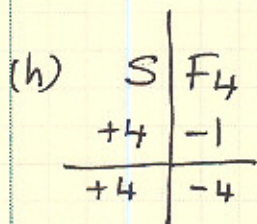 (h) S | F₄
+4 | -1
+4 | -4